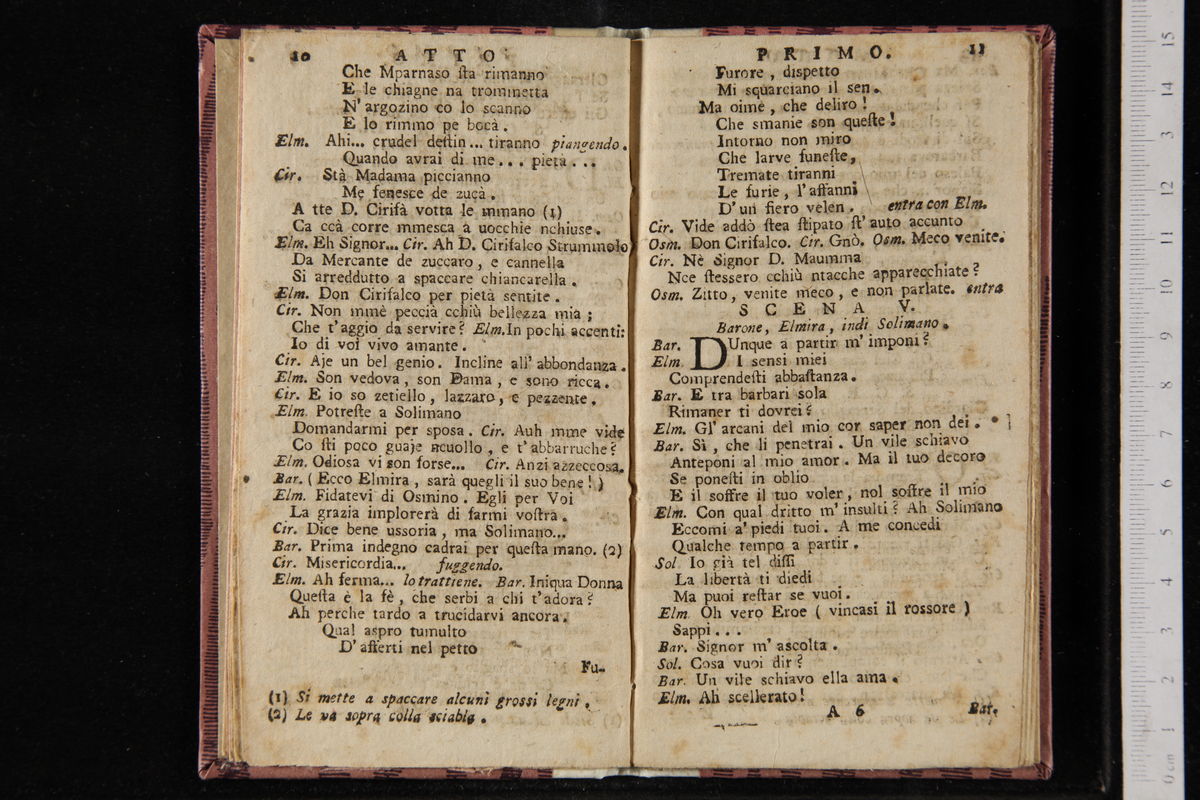 10 ATTO
Che Mparnaso ſta rimanno
E le chiagne na trommetta
N' argozino co lo scanno
E lo rimmo pe bocà.
Elm. Ahi... crudel deſtin... tiranno piangendo.
Quando avrai di me... pietà...
Cir. Stà Madama piccianno
Me fenesce de zucà.
A tte D. Cirifà votta le mmano (1)
Ca ccà corre mmesca a uocchie nchiuse.
Elm. Eh Signor... Cir. Ah D. Cirifalco Strummolo
Da Mercante de zuccaro, e cannella
Si arreddutto a spaccare chiancarella.
Elm. Don Cirifalco per pietà sentite.
Cir. Non mmè peccia cchiù bellezza mia;
Che t'aggio da servire? Elm. In pochi accenti:
Io di voi vivo amante.
Cir. Aje un bel genio. Incline all' abbondanza.
Elm. Son vedova, son Dama, e sono ricca.
Cir. E io so zetiello, lazzaro, e pezzente.
Elm. Potreſte a Solimano
Domandarmi per sposa. Cir. Auh mme vide
Co ſti poco guaje ncuollo, e t'abbarruche?
Elm. Odiosa vi son forse... Cir. Anzi azzeccosa.
Bar. (Ecco Elmira, sarà quegli il suo bene!)
Elm. Fidatevi di Osmino. Egli per Voi
La grazia implorerà di farmi voſtra.
Cir. Dice bene ussoria, ma Solimano...
Bar. Prima indegno cadrai per queſta mano. (2)
Cir. Misericordia... fuggendo.
Elm. Ah ferma... lo trattiene. Bar. Iniqua Donna
Queſta è la fè, che serbi a chi t'adora?
Ah perche tardo a trucidarvi ancora.
Qual aspro tumulto
D' afferti nel petto
Fu-
(1) Si mette a spaccare alcuni grossi legni.
(2) Le va sopra colla sciabla.
PRIMO. 11
Furore, dispetto
Mi squarciano il sen.
Ma oimè, che deliro!
Che smanie son queſte!
Intorno non miro
Che larve funeſte,
Tremate tiranni
Le furie, l'affanni
D'un fiero velen. entra con Elm.
Cir. Vide addò ſtea ſtipato ſt' auto accunto
Osm. Don Cirifalco. Cir. Gnò. Osm. Meco venite.
Cir. Nè Signor D. Maumma
Nce ſtessero cchiù ntacche apparecchiate?
Osm. Zitto, venite meco, e non parlate. entra
SCENA V.
Barone, Elmira, indi Solimano.
Bar. DUnque a partir m' imponi?
Elm. I sensi miei
Comprendeſti abbaſtanza.
Bar. E tra barbari sola
Rimaner ti dovrei?
Elm. Gl' arcani del mio cor saper non dei.
Bar. Sì, che li penetrai. Un vile schiavo
Anteponi al mio amor. Ma il tuo decoro
Se poneſti in oblio
E il soffre il tuo voler, nol soffre il mio
Elm. Con qual dritto m' insulti? Ah Solimano
Eccomi a' piedi tuoi. A me concedi
Qualche tempo a partir.
Sol Io già tel diſſi
La libertà ti diedi
Ma puoi reſtar se vuoi.
Elm. Oh vero Eroe (vincasi il rossore)
Sappi...
Bar. Signor m' ascolta.
Sol. Cosa vuoi dir?
Bar. Un vile schiavo ella ama.
Elm. Ah scellerato!
A 6 Bar.